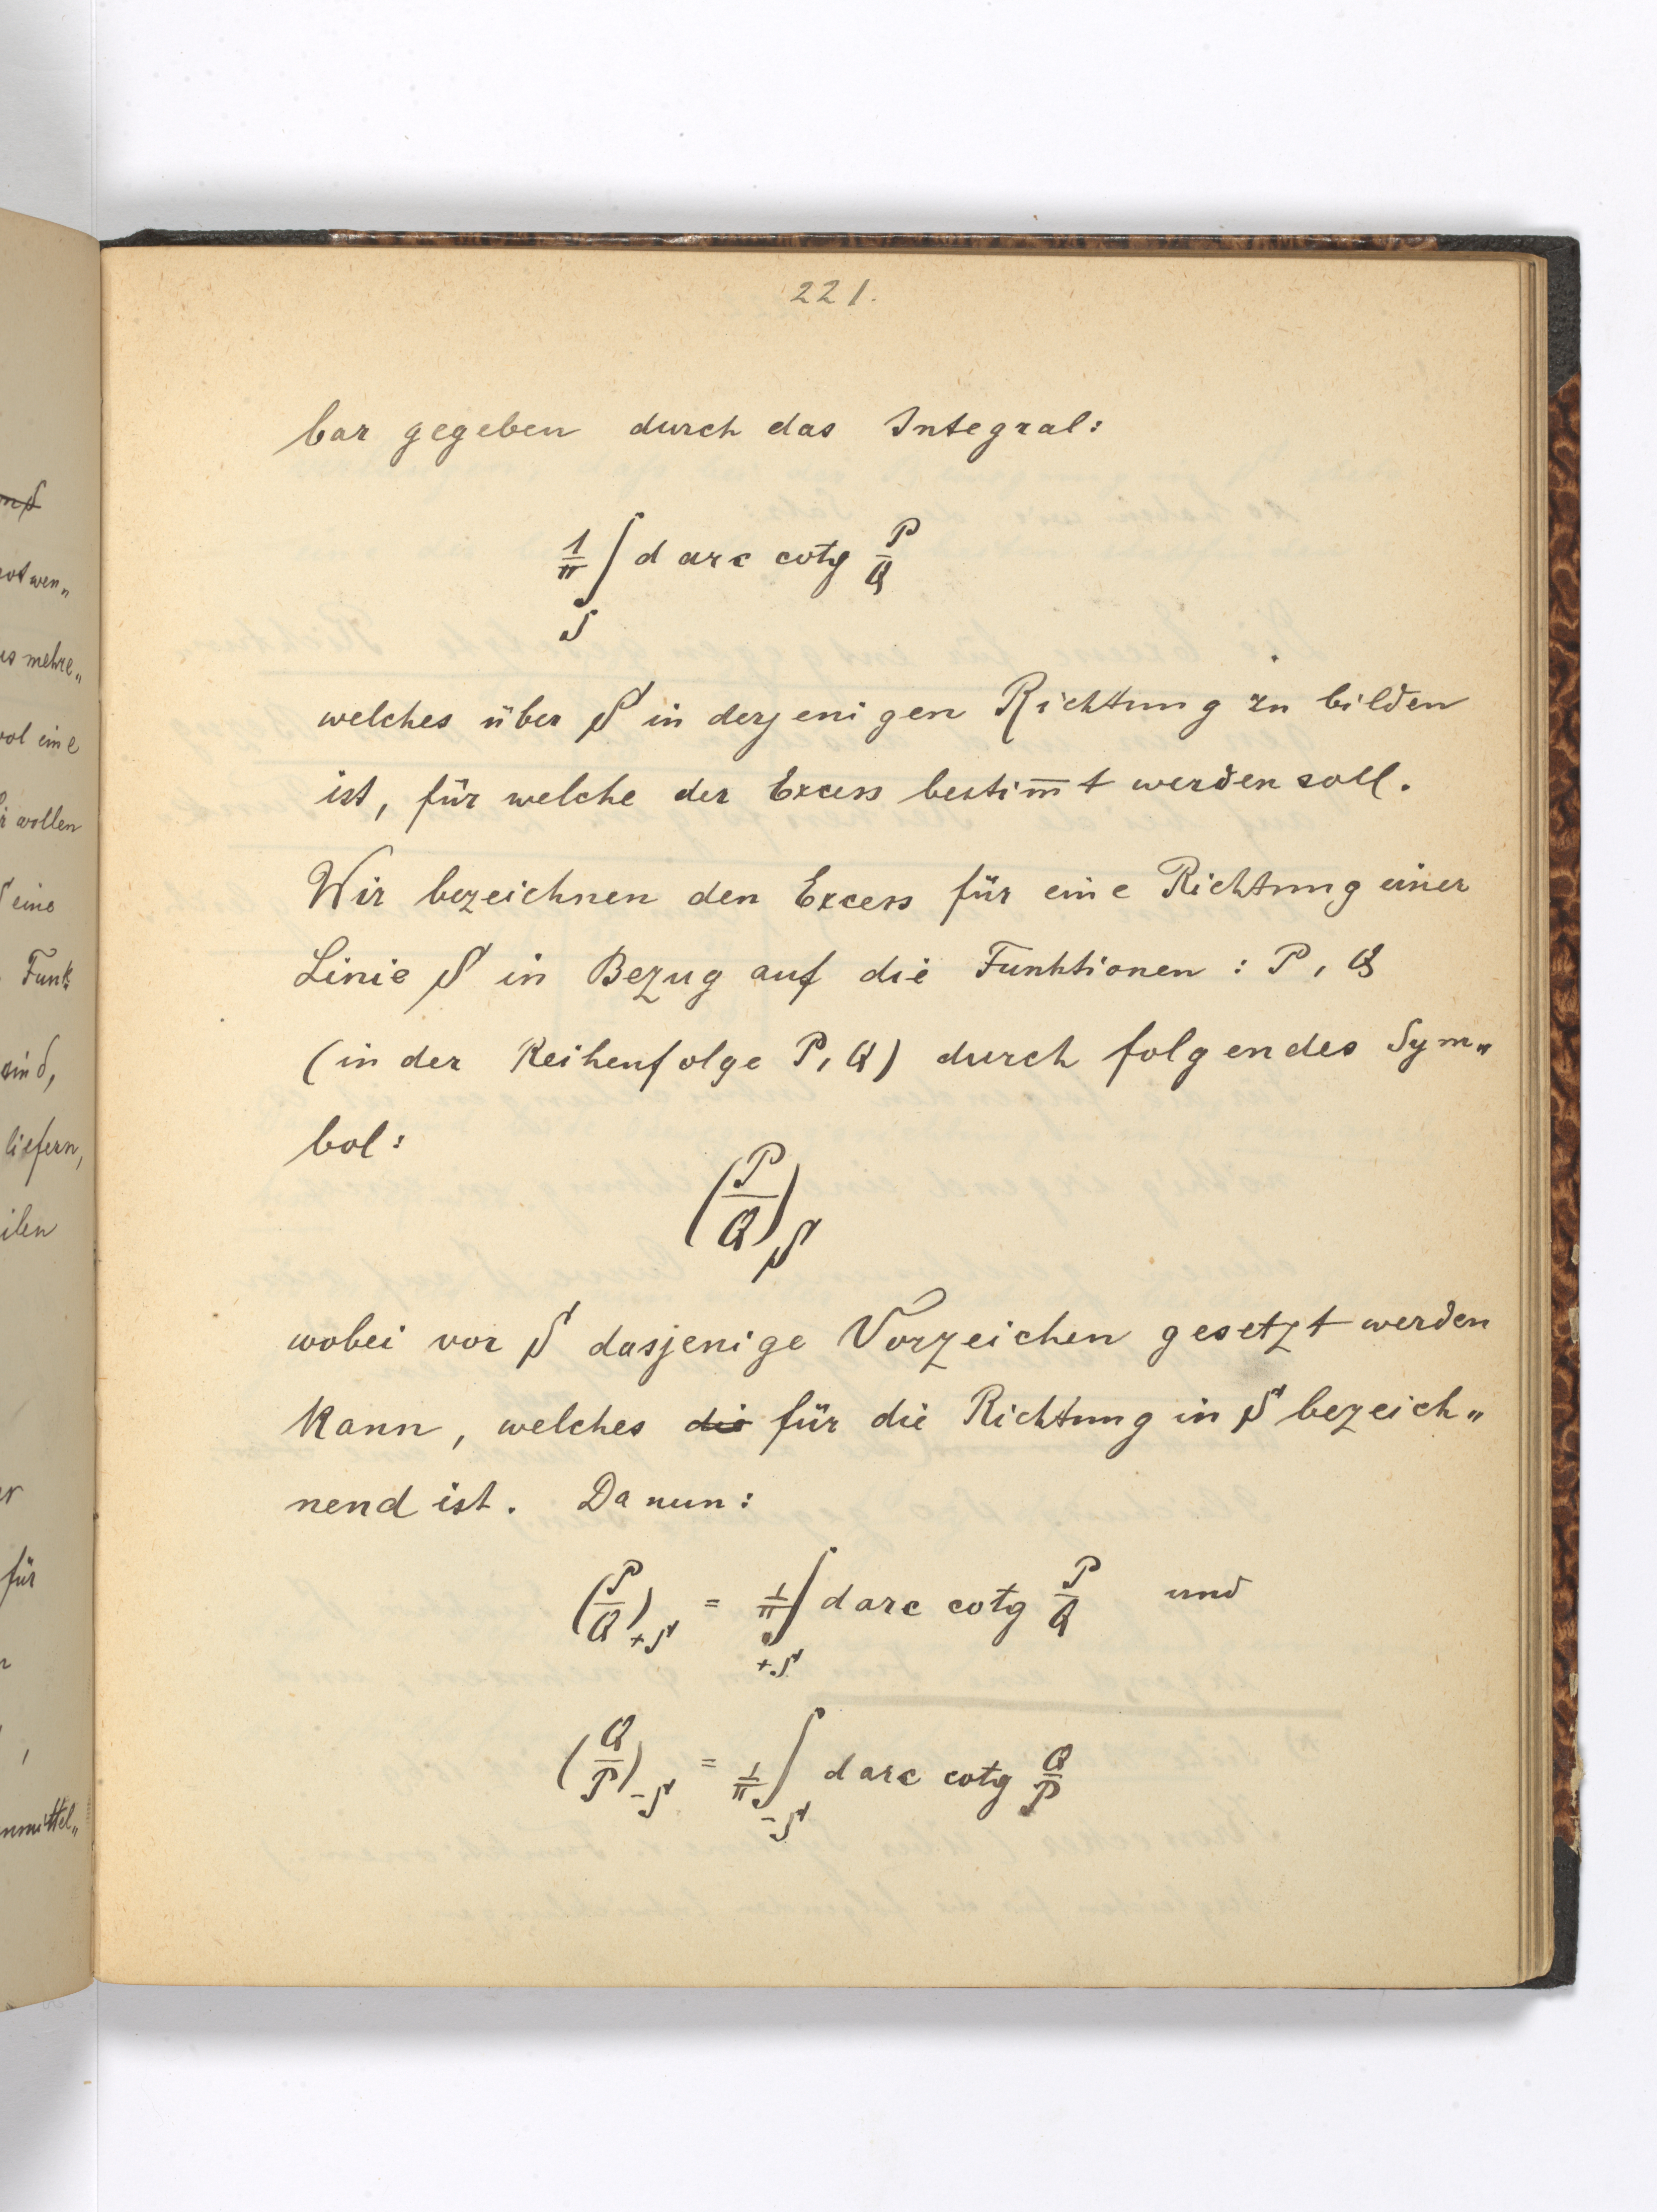 221.
bar gegeben durch das Integral:
1/π ∫_S d arc cotg P/Q
welches über S in derjenigen Richtung zu bilden
ist, für welche der Excess bestim̅t werden soll.
Wir bezeichnen den Excess für eine Richtung einer
Linie S in Bezug auf die Funktionen : P, Q
(in der Reihenfolge P, Q) durch folgendes Sym„
bol:
(P/Q)_S
wobei vor S dasjenige Vorzeichen gesetzt werden
kann, welches die für die Richtung in S bezeich„
nend ist. Da nun:
(P/Q)_{+S} = 1/π ∫_{+S} d arc cotg P/Q und
(Q/P)_{-S} = 1/π ∫_{-S} d arc cotg Q/P
wollen
eine
Funk
sind,
liefern,
für